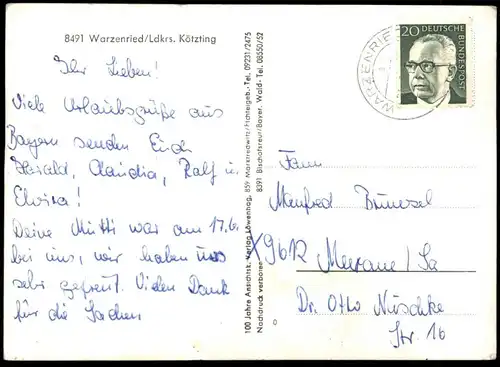 8491 Warzenried/Ldkrs. Kötzting
Ihr Lieben!
Viele Urlaubsgrüße aus
Bayern senden Euch
Harald, Claudia, Ralf u.
Elvira!
Deine Mutti war am 17.6.
bei uns, wir haben uns
sehr gefreut. Vielen Dank
für die Sachen
100 Jahre Ansichtsk. Verlag Löwenhag, 859 Marktredwitz/Fichtelgeb.-Tel. 09231/2475
Nachdruck verboten 8391 Bischofsreut/Bayer. Wald- Tel. 08550/52
WARZENRIED
20
DEUTSCHE
BUNDESPOST
Fam
Manfred
X9612 Meerane/Sa
Dr. Otto Nuschke
Str. 16